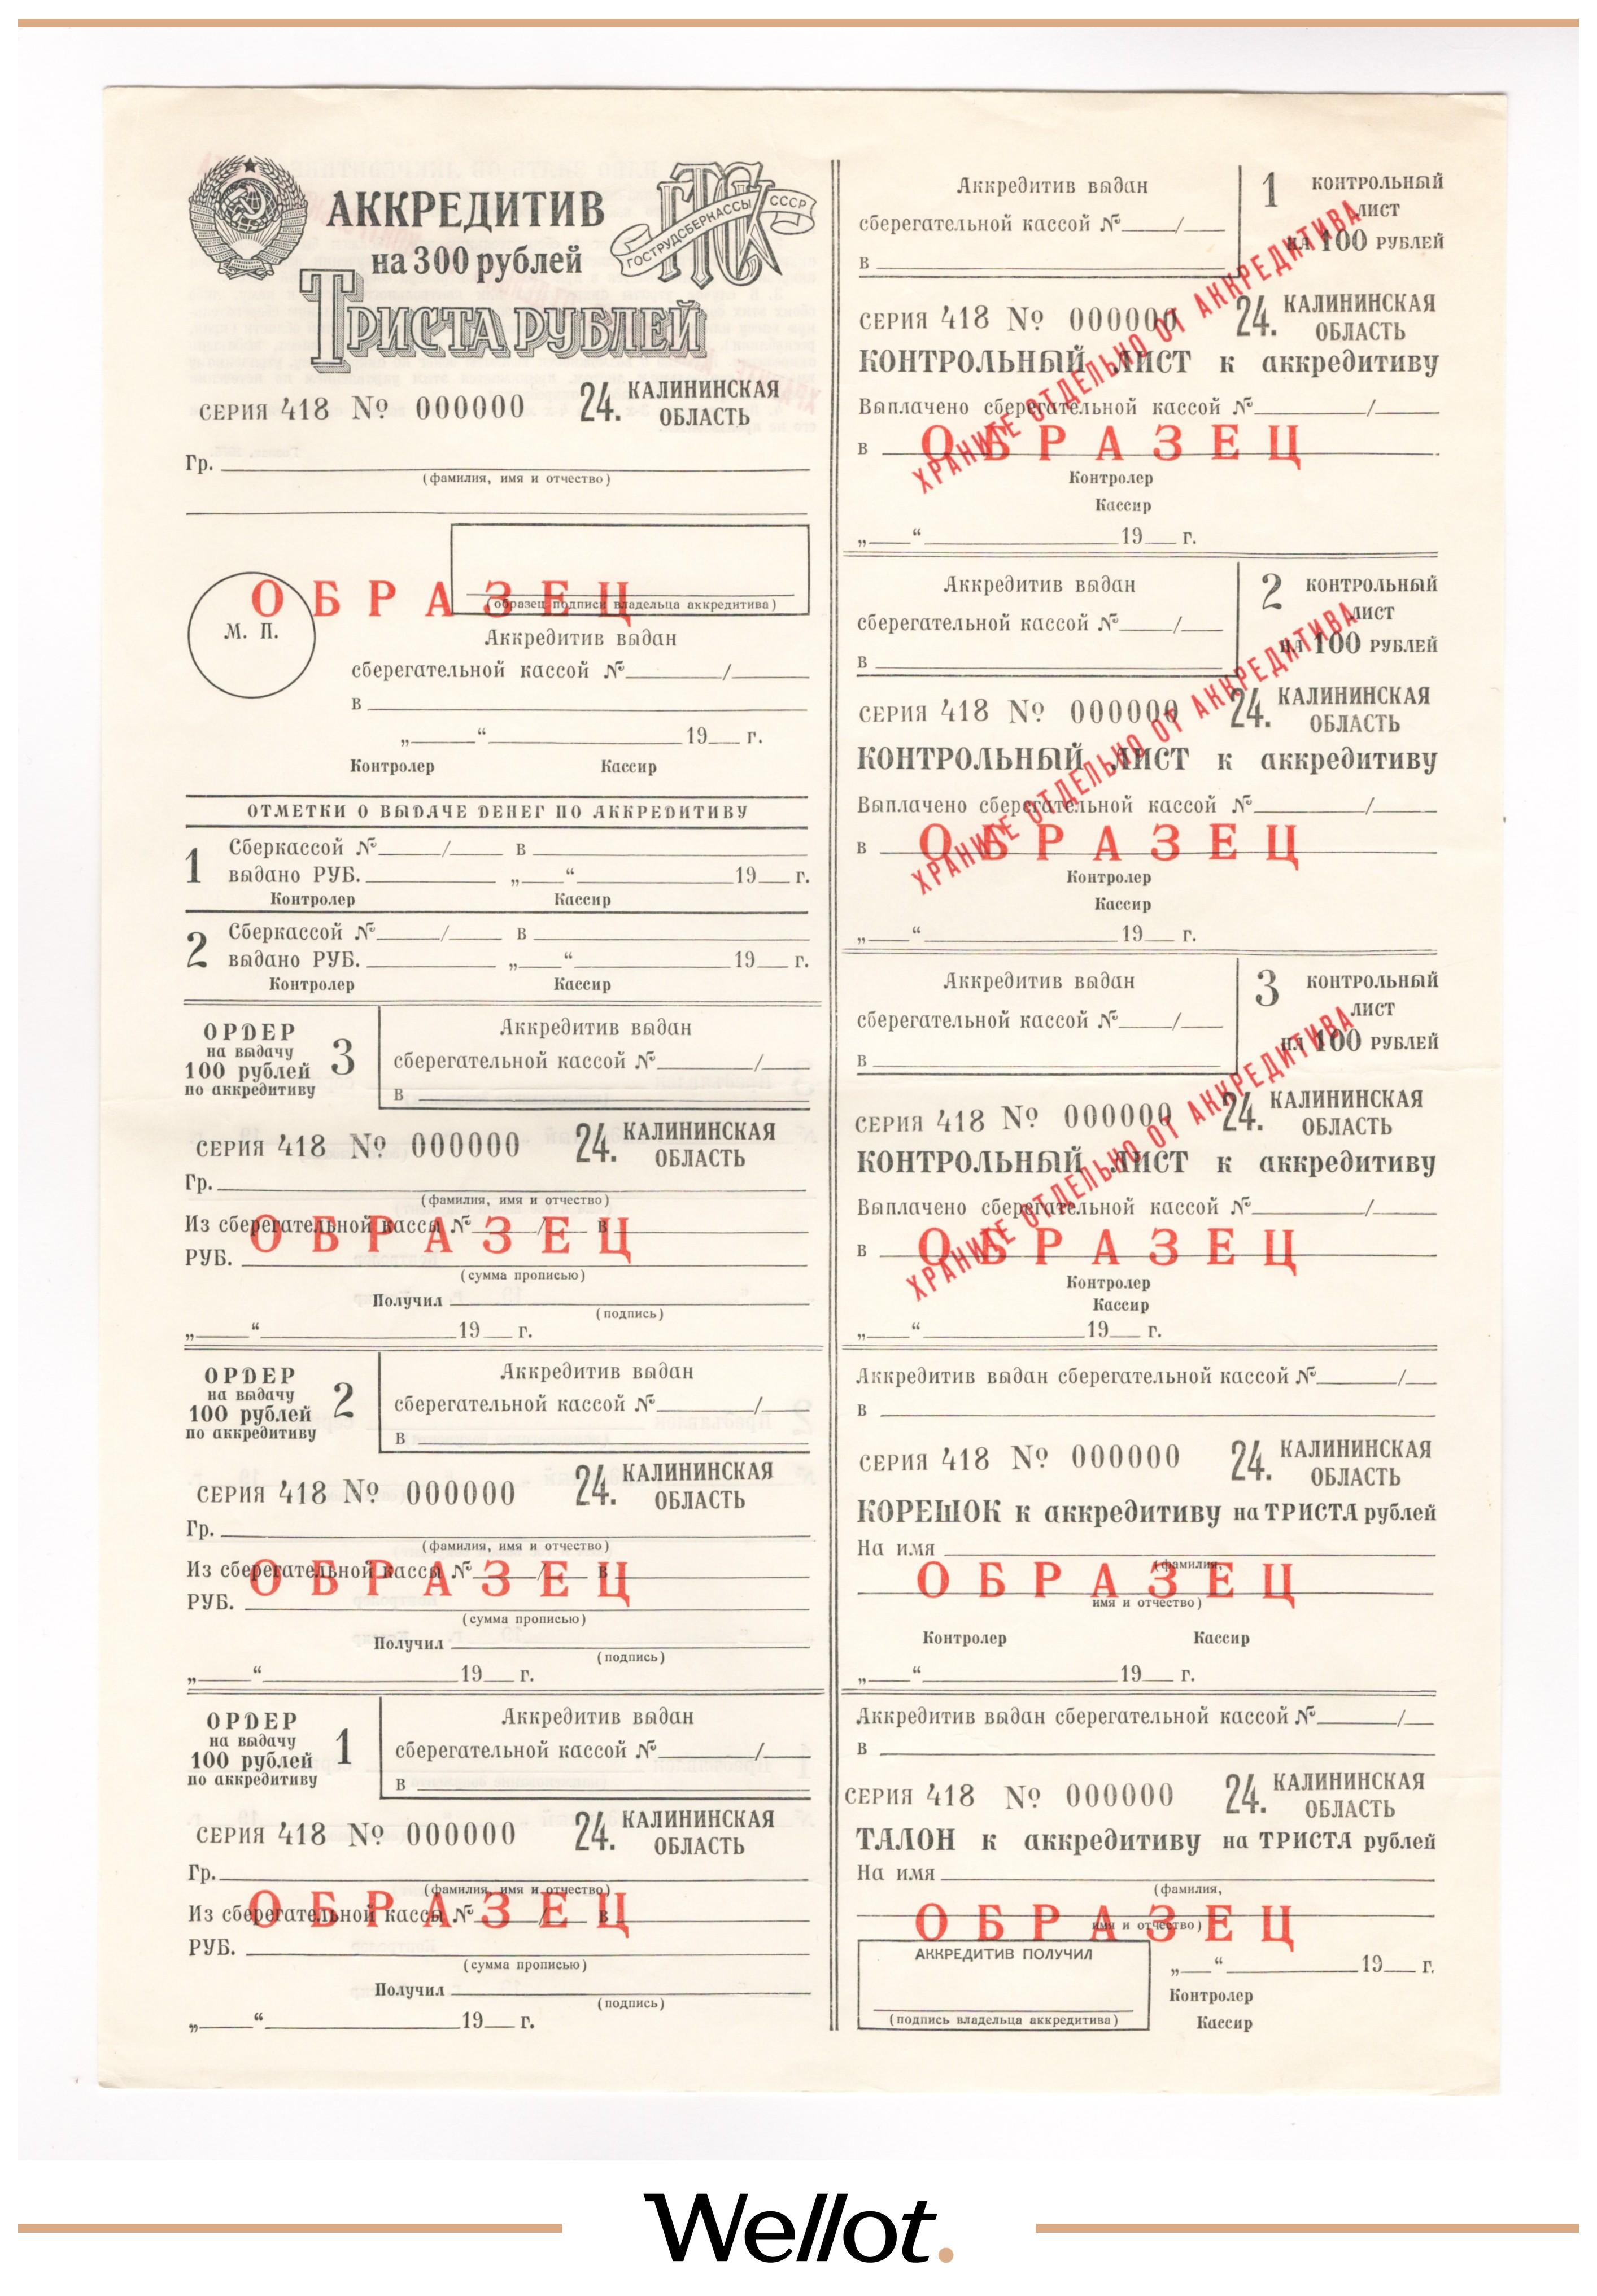 АККРЕДИТИВ
на 300 рублей
ГОСТРУДСБЕРКАССЫ СССР
ТРИСТА РУБЛЕЙ
СЕРИЯ 418 № 000000 24. КАЛИНИНСКАЯ
ОБЛАСТЬ
Гр.
(фамилия, имя и отчество)
ОБРАЗЕЦ
(образец подписи владельца аккредитива)
М. П.
Аккредитив выдан
сберегательной кассой №___/___
в
„___“___19__ г.
Контролер Кассир
ОТМЕТКИ О ВЫДАЧЕ ДЕНЕГ ПО АККРЕДИТИВУ
1 Сберкассой №___/___ в
выдано РУБ.___ „___“___19__ г.
Контролер Кассир
2 Сберкассой №___/___ в
выдано РУБ.___ „___“___19__ г.
Контролер Кассир
ОРДЕР
на выдачу
100 рублей
по аккредитиву
3
Аккредитив выдан
сберегательной кассой №___/___
в
СЕРИЯ 418 № 000000 24. КАЛИНИНСКАЯ
ОБЛАСТЬ
Гр.
(фамилия, имя и отчество)
Из сберегательной кассы №___/___ в
ОБРАЗЕЦ
РУБ.
(сумма прописью)
Получил
(подпись)
„___“___19__ г.
ОРДЕР
на выдачу
100 рублей
по аккредитиву
2
Аккредитив выдан
сберегательной кассой №___/___
в
СЕРИЯ 418 № 000000 24. КАЛИНИНСКАЯ
ОБЛАСТЬ
Гр.
(фамилия, имя и отчество)
Из сберегательной кассы №___/___ в
ОБРАЗЕЦ
РУБ.
(сумма прописью)
Получил
(подпись)
„___“___19__ г.
ОРДЕР
на выдачу
100 рублей
по аккредитиву
1
Аккредитив выдан
сберегательной кассой №___/___
в
СЕРИЯ 418 № 000000 24. КАЛИНИНСКАЯ
ОБЛАСТЬ
Гр.
(фамилия, имя и отчество)
Из сберегательной кассы №___/___ в
ОБРАЗЕЦ
РУБ.
(сумма прописью)
Получил
(подпись)
„___“___19__ г.
Аккредитив выдан
сберегательной кассой №___/___
в
1 КОНТРОЛЬНЫЙ
ЛИСТ
НА 100 РУБЛЕЙ
СЕРИЯ 418 № 000000 24. КАЛИНИНСКАЯ
ОБЛАСТЬ
КОНТРОЛЬНЫЙ ЛИСТ к аккредитиву
Выплачено сберегательной кассой №___/___
в
ОБРАЗЕЦ
ХРАНИТЕ ОТДЕЛЬНО ОТ АККРЕДИТИВА
Контролер
Кассир
„___“___19__ г.
Аккредитив выдан
сберегательной кассой №___/___
в
2 КОНТРОЛЬНЫЙ
ЛИСТ
НА 100 РУБЛЕЙ
СЕРИЯ 418 № 000000 24. КАЛИНИНСКАЯ
ОБЛАСТЬ
КОНТРОЛЬНЫЙ ЛИСТ к аккредитиву
Выплачено сберегательной кассой №___/___
в
ОБРАЗЕЦ
ХРАНИТЕ ОТДЕЛЬНО ОТ АККРЕДИТИВА
Контролер
Кассир
„___“___19__ г.
Аккредитив выдан
сберегательной кассой №___/___
в
3 КОНТРОЛЬНЫЙ
ЛИСТ
НА 100 РУБЛЕЙ
СЕРИЯ 418 № 000000 24. КАЛИНИНСКАЯ
ОБЛАСТЬ
КОНТРОЛЬНЫЙ ЛИСТ к аккредитиву
Выплачено сберегательной кассой №___/___
в
ОБРАЗЕЦ
ХРАНИТЕ ОТДЕЛЬНО ОТ АККРЕДИТИВА
Контролер
Кассир
„___“___19__ г.
Аккредитив выдан сберегательной кассой №___/___
в
СЕРИЯ 418 № 000000 24. КАЛИНИНСКАЯ
ОБЛАСТЬ
КОРЕШОК к аккредитиву на ТРИСТА рублей
На имя
(фамилия,
ОБРАЗЕЦ
имя и отчество)
Контролер Кассир
„___“___19__ г.
Аккредитив выдан сберегательной кассой №___/___
в
СЕРИЯ 418 № 000000 24. КАЛИНИНСКАЯ
ОБЛАСТЬ
ТАЛОН к аккредитиву на ТРИСТА рублей
На имя
(фамилия,
ОБРАЗЕЦ
имя и отчество)
АККРЕДИТИВ ПОЛУЧИЛ
(подпись владельца аккредитива)
„___“___19__ г.
Контролер
Кассир
Wellot.